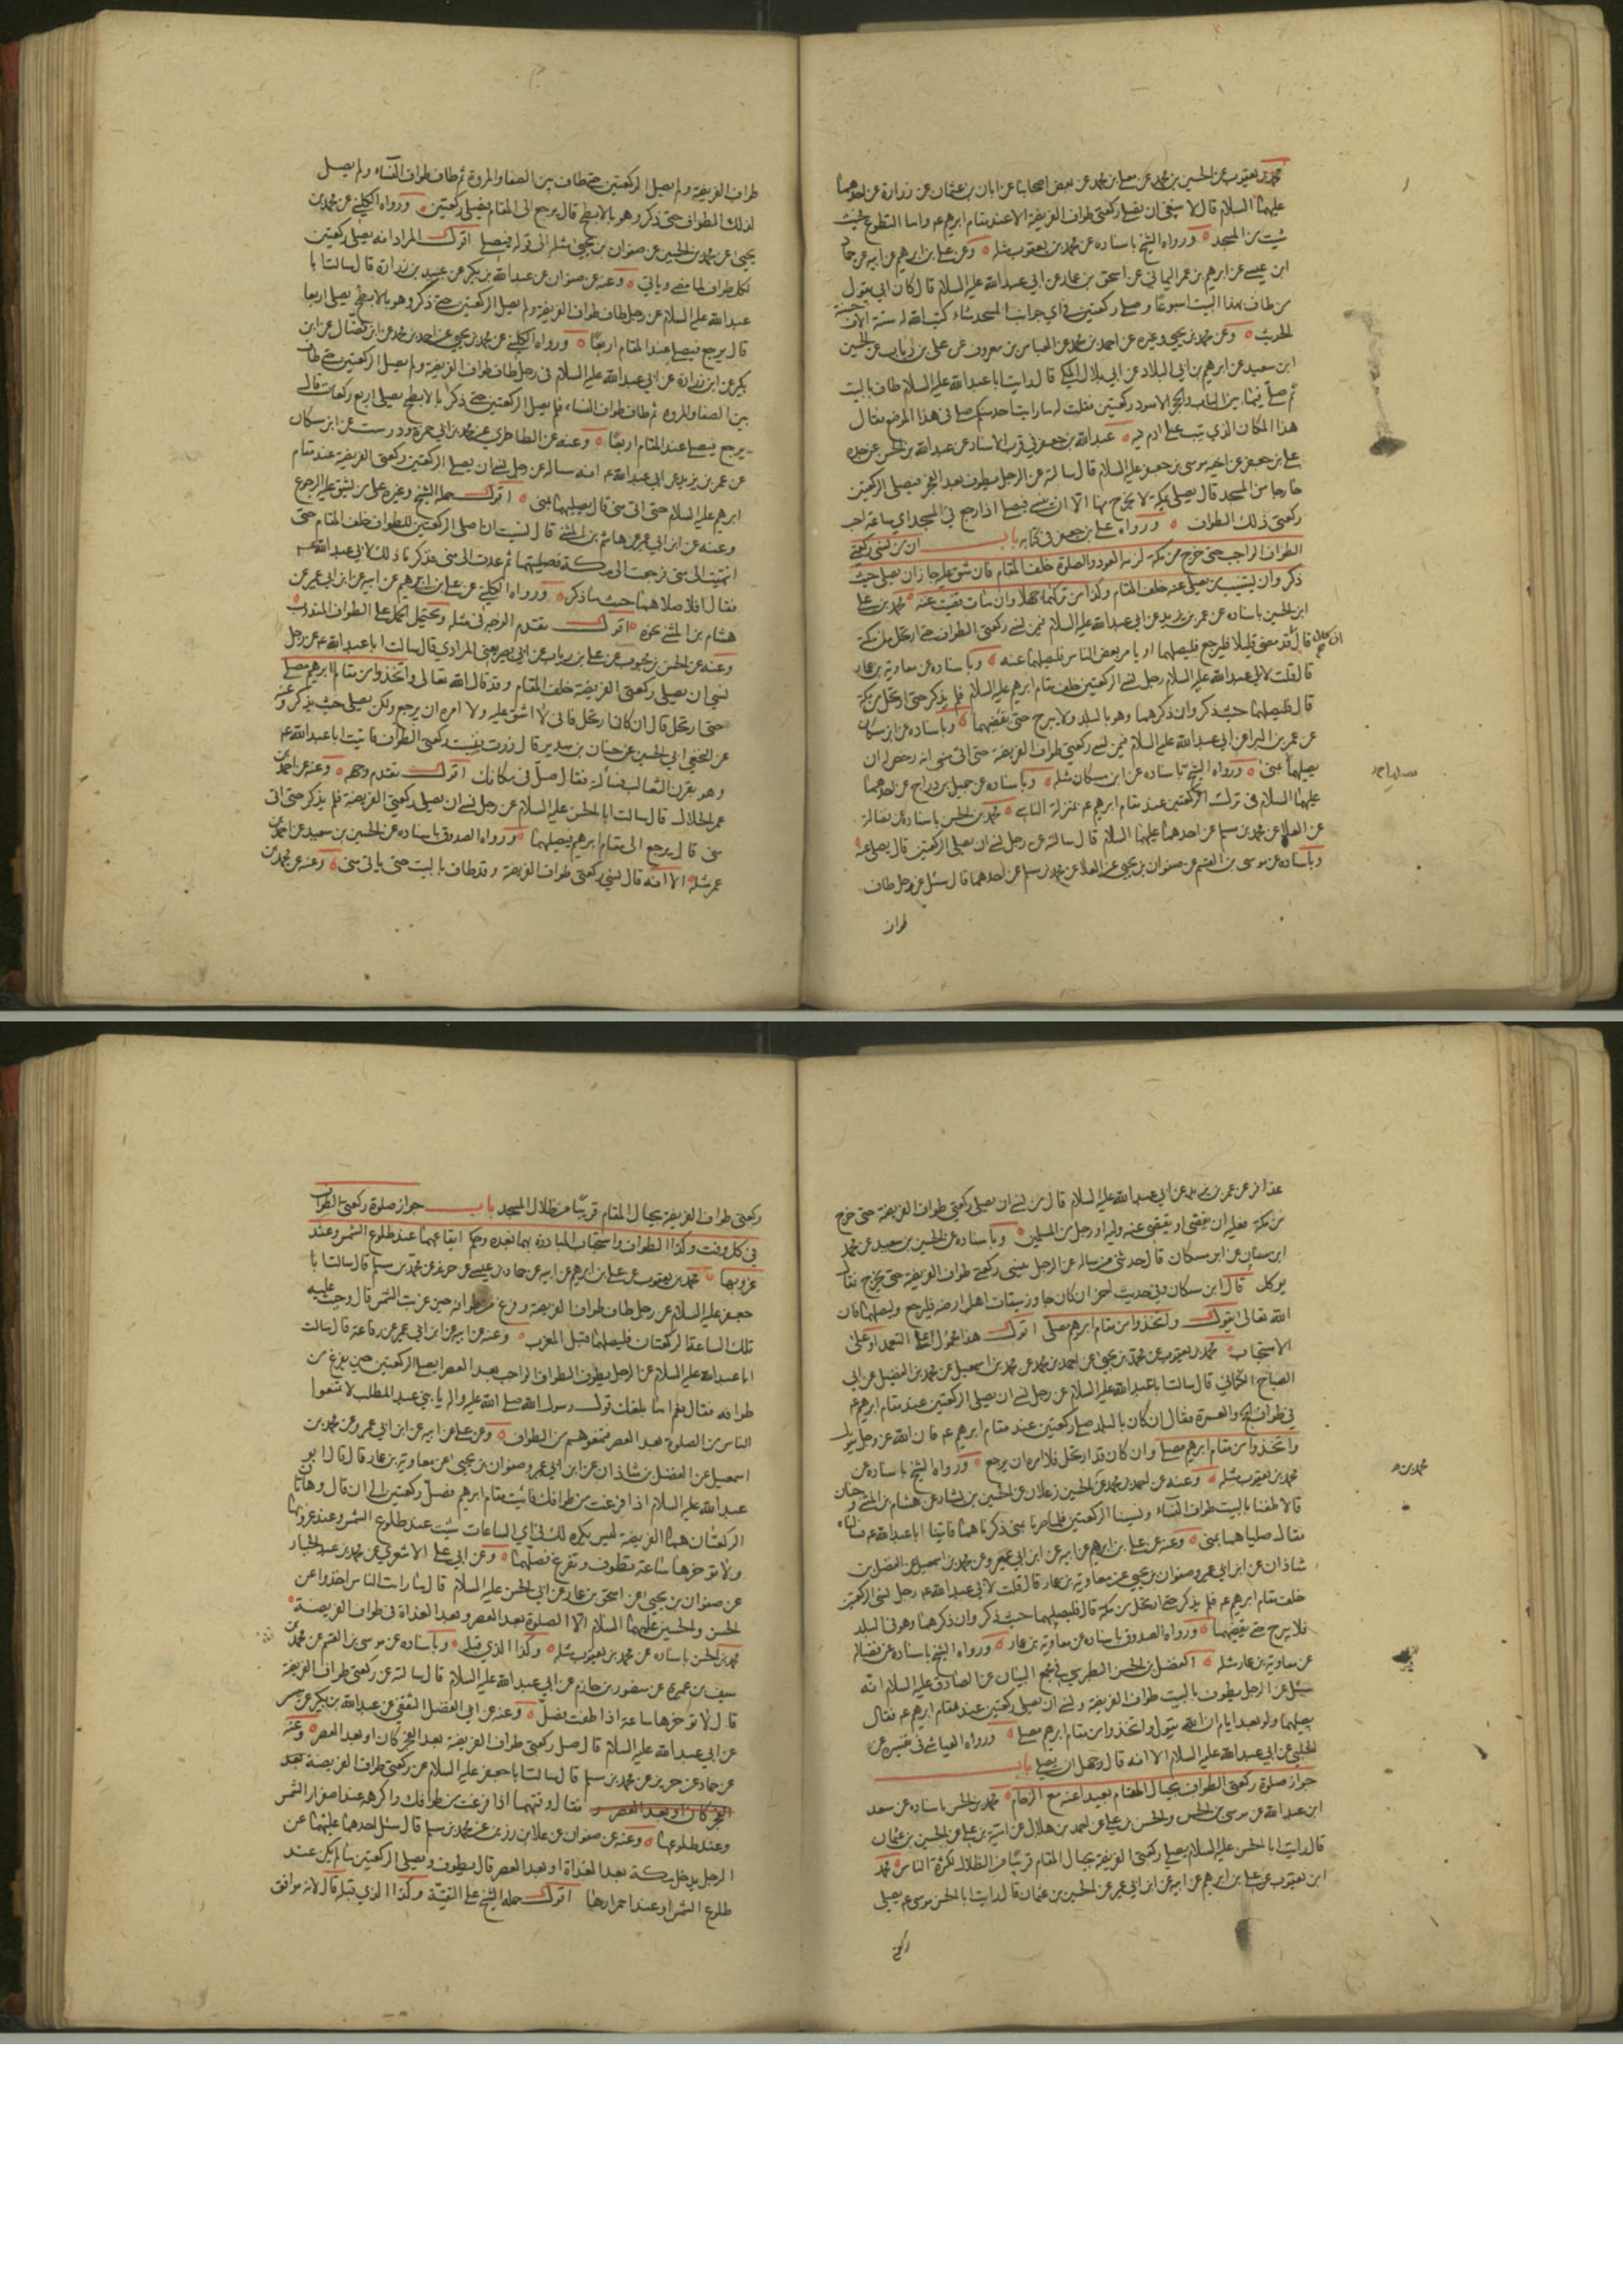 محمد بن يعقوب عن الحسين بن محمد عن معلى بن محمد عن بعض اصحابنا عن ابان بن عثمان عن زرارة عن احدهما
عليهما السلام قال لا ينبغي ان تصلي ركعتي طواف الفريضة الا عند مقام ابرهيم ع واما التطوع فحيث
شئت من المسجد ورواه الشيخ باسناده عن محمد بن يعقوب مثله وعن علي بن ابرهيم عن ابيه عن حماد
ابن عيسى عن ابرهيم بن عمر اليماني عن اسحق بن عمار عن ابي عبد الله عليه السلام قال كان ابي يقول
من طاف بهذا البيت اسبوعا وصلى ركعتين في اي جوانب المسجد شاء كتب الله له ستة الاف حسنة
الحديث وعن محمد بن يحيى وغيره عن احمد بن محمد عن العباس بن معروف عن علي بن مهزيار عن الحسين
ابن سعيد عن ابرهيم بن ابي البلاد عن ابي بلال المكي قال رايت ابا عبد الله عليه السلام طاف بالبيت
ثم صلى فيما بين الباب والحجر الاسود ركعتين فقلت له ما رايت احدا منكم صلى في هذا الموضع فقال
هذا المكان الذي تيب على ادم فيه عبد الله بن جعفر في قرب الاسناد عن عبد الله بن الحسن عن جده
علي بن جعفر عن اخيه موسى بن جعفر عليه السلام قال سالته عن الرجل يطوف بعد الفجر فيصلي الركعتين
خارجا من المسجد قال يصلي بمكة لا يخرج منها الا ان ينسى فيصلي اذا رجع في المسجد اي ساعة احب
ركعتي ذلك الطواف ورواه علي بن جعفر في كتابه باب ان من نسي ركعتي
الطواف الواجب حتى خرج من مكة لزمه العود والصلوة خلف المقام فان شق عليه جاز ان يصلي حيث
ذكر وان يستنيب من يصلي عنه خلف المقام وكذا من تركهما جهلا وان مات قضيت عنه محمد بن علي
ابن الحسين باسناده عن عمر بن يزيد عن ابي عبد الله عليه السلام فيمن نسي ركعتي الطواف حتى ارتحل من مكة
قال ان كان قد مضى قليلا فليرجع فليصلهما او يامر بعض الناس فليصلهما عنه وباسناده عن معاوية بن عمار
قال قلت لابي عبد الله عليه السلام رجل نسي الركعتين خلف مقام ابرهيم عليه السلام فلم يذكر حتى ارتحل من مكة
قال فليصلهما حيث ذكر وان ذكرهما وهو بالبلد فلا يبرح حتى يقضيهما وباسناده عن ابن مسكان
عن عمر بن البراء عن ابي عبد الله عليه السلام فيمن نسي ركعتي طواف الفريضة حتى اتى منى انه رخص له ان
يصليهما بمنى ورواه الشيخ باسناده عن ابن مسكان مثله وباسناده عن جميل بن دراج عن احدهما
عليهما السلام في ترك الركعتين عند مقام ابرهيم ع بمنزلة الناسي محمد بن الحسن باسناده عن فضالة
عن العلاء عن محمد بن مسلم عن احدهما عليهما السلام قال سالته عن رجل نسي ان يصلي الركعتين قال يصلى عنه
وباسناده عن موسى بن القسم عن صفوان بن يحيى عن العلا عن محمد بن مسلم عن احدهما قال سئل عن رجل طاف
طواف
طواف الفريضة ولم يصل الركعتين حتى طاف بين الصفا والمروة ثم طاف طواف النساء ولم يصل
لذلك الطواف حتى ذكر وهو بالابطح قال يرجع الى المقام فيصلي ركعتين ورواه الكليني عن محمد بن
يحيى عن محمد بن الحسين عن صفوان بن يحيى مثله الى قوله فيصلي اقول المراد انه يصلي ركعتين
لكل طواف لما مضى وياتي وعنه عن صفوان عن عبد الله بن بكير عن عبيد بن زرارة قال سالت ابا
عبد الله عليه السلام عن رجل طاف طواف الفريضة ولم يصل الركعتين حتى ذكر وهو بالابطح يصلي اربعا
قال يرجع فيصلي عند المقام اربعا ورواه الكليني عن محمد بن يحيى عن احمد بن محمد عن ابن فضال عن ابن
بكير عن ابن زرارة عن ابي عبد الله عليه السلام في رجل طاف طواف الفريضة ولم يصل الركعتين حتى طاف
بين الصفا والمروة ثم طاف طواف النساء فلم يصل الركعتين حتى ذكر بالابطح يصلي اربع ركعات قال
يرجع فيصلي عند المقام اربعا وعنه عن الطاطري عن محمد بن ابي حمزة ودرست عن ابن مسكان
عن عمر بن يزيد عن ابي عبد الله ع انه ساله عن رجل نسي ان يصلي الركعتين ركعتي الفريضة عند مقام
ابرهيم عليه السلام حتى اتى منى قال يصليهما بمنى اقول حمله الشيخ وغيره على من يشق عليه الرجوع
وعنه عن ابن ابي عمير عن هاشم بن المثنى قال نسيت ان اصلي الركعتين للطواف خلف المقام حتى
انتهيت الى منى فرجعت الى مكة فصليتهما ثم عدت الى منى فذكرنا ذلك لابي عبد الله ع
فقال افلا صلاهما حيث ما ذكر ورواه الكليني عن علي بن ابرهيم عن ابيه عن ابن ابي عمير عن
هشام بن المثنى نحوه اقول تقدم الوجه في مثله ويحتمل الحمل على الطواف المندوب
وعنه عن الحسن بن محبوب عن علي بن رياب عن ابي بصير يعني المرادي قال سالت ابا عبد الله ع عن رجل
نسي ان يصلي ركعتي الفريضة خلف المقام وقد قال الله تعالى واتخذوا من مقام ابرهيم مصلى
حتى ارتحل قال ان كان ارتحل فاني لا اشق عليه ولا امره ان يرجع ولكن يصلي حيث يذكر وعنه
عن النخعي ابي الحسين عن حنان بن سدير قال زرت فنسيت ركعتي الطواف فاتيت ابا عبد الله ع
وهو بقرن الثعالب فسالته فقال صل في مكانك اقول تقدم وجهه وعنه عن احمد بن
عمر الحلال قال سالت ابا الحسن عليه السلام عن رجل نسي ان يصلي ركعتي الفريضة فلم يذكر حتى اتى
منى قال يرجع الى مقام ابرهيم فيصليهما ورواه الصدوق باسناده عن الحسين بن سعيد عن احمد بن
عمر مثله الا انه قال نسي ركعتي طواف الفريضة وقد طاف بالبيت حتى ياتي منى وعنه عن محمد بن
عذافر عن عمر بن يزيد عن ابي عبد الله عليه السلام قال من نسي ان يصلي ركعتي طواف الفريضة حتى خرج
من مكة فعليه ان يقضي او يقضي عنه وليه او رجل من المسلمين وباسناده عن الحسين بن سعيد عن محمد
ابن سنان عن ابن مسكان قال حدثني من ساله عن الرجل ينسى ركعتي طواف الفريضة حتى يخرج فقال
يوكل قال ابن مسكان وفي حديث اخر ان كان جاوز ميقات اهل ارضه فليرجع وليصلهما فان
الله تعالى يقول واتخذوا من مقام ابرهيم مصلى اقول هذا محمول على التعمد او على
الاستحباب محمد بن يعقوب عن محمد بن يحيى عن احمد بن محمد عن محمد بن اسمعيل عن محمد بن الفضيل عن ابي
الصباح الكناني قال سالت ابا عبد الله عليه السلام عن رجل نسي ان يصلي الركعتين عند مقام ابرهيم ع
في طواف الحج والعمرة فقال ان كان بالبلد صلى ركعتين عند مقام ابرهيم ع فان الله عز وجل يقول
واتخذوا من مقام ابرهيم مصلى وان كان قد ارتحل فلا امره ان يرجع ورواه الشيخ باسناده عن
محمد بن يعقوب مثله وعنه عن احمد بن محمد عن الحسين زعلان عن الحسين بن بشار عن هشام بن المثنى وحنان
قالا طفنا بالبيت طواف النساء ونسينا الركعتين فلما صرنا بمنى ذكرناهما فاتينا ابا عبد الله ع فسالناه
فقال صلياهما بمنى وعنه عن علي بن ابرهيم عن ابيه عن ابن ابي عمير وعن محمد بن اسمعيل عن الفضل بن
شاذان عن ابن ابي عمير وصفوان بن يحيى عن معاوية بن عمار قال قلت لابي عبد الله ع رجل نسي الركعتين
خلف مقام ابرهيم ع فلم يذكر حتى ارتحل من مكة قال فليصلهما حيث ذكر وان ذكرهما وهو في البلد
فلا يبرح حتى يقضيهما ورواه الصدوق باسناده عن معاوية بن عمار ورواه الشيخ باسناده عن فضالة
عن معاوية بن عمار مثله الفضل بن الحسن الطبرسي في مجمع البيان عن الصادق عليه السلام انه
سئل عن الرجل يطوف بالبيت طواف الفريضة ونسي ان يصلي ركعتين عند مقام ابرهيم ع فقال
يصليهما ولو بعد ايام ان الله يقول واتخذوا من مقام ابرهيم مصلى ورواه العياشي في تفسيره عن
الحلبي عن ابي عبد الله عليه السلام الا انه قال وجهل ان يصلي باب
جواز صلوة ركعتي الطواف بحيال المقام بعيدا عنه مع الزحام محمد بن الحسن باسناده عن سعد
ابن عبد الله عن موسى بن الحسن والحسن بن علي عن احمد بن هلال عن امية بن علي عن الحسين بن عثمان
قال رايت ابا الحسن عليه السلام يصلي ركعتي الفريضة بحيال المقام قريبا من الظلال لكثرة الناس محمد
ابن يعقوب عن علي بن ابرهيم عن ابيه عن ابن ابي عمير عن الحسين بن عثمان قال رايت ابا الحسن موسى ع يصلي
ركعتي
ركعتي طواف الفريضة بحيال المقام قريبا من ظلال المسجد باب جواز صلوة ركعتي الطواف
في كل وقت وكذا الطواف واستحباب المبادرة بهما بعده وحكم ايقاعهما عند طلوع الشمس وعند
غروبها محمد بن يعقوب عن علي بن ابرهيم عن ابيه عن حماد بن عيسى عن حريز عن محمد بن مسلم قال سالت ابا
جعفر عليه السلام عن رجل طاف طواف الفريضة وفرغ من طوافه حين غربت الشمس قال وجبت عليه
تلك الساعة الركعتان فليصلهما قبل المغرب وعنه عن ابيه عن ابن ابي عمير عن رفاعة قال سالت
ابا عبد الله عليه السلام عن الرجل يطوف الطواف الواجب بعد العصر ايصلي الركعتين حين يفرغ من
طوافه فقال نعم اما بلغك قول رسول الله صلى الله عليه واله يا بني عبد المطلب لا تمنعوا
الناس من الصلوة بعد العصر فتمنعوهم من الطواف وعن علي عن ابيه عن ابن ابي عمير وعن محمد بن
اسمعيل عن الفضل بن شاذان عن ابن ابي عمير وصفوان بن يحيى عن معاوية بن عمار قال قال ابو
عبد الله عليه السلام اذا فرغت من طوافك فائت مقام ابرهيم فصل ركعتين الى ان قال وهاتان
الركعتان هما الفريضة ليس يكره لك في اي الساعات شئت عند طلوع الشمس وعند غروبها
ولا تؤخرها ساعة تطوف وتفرغ فصلهما وعن ابي علي الاشعري عن محمد بن عبد الجبار
عن صفوان بن يحيى عن اسحق بن عمار عن ابي الحسن عليه السلام قال ما رايت الناس اخذوا عن
الحسن والحسين عليهما السلام الا الصلوة بعد العصر وبعد الغداة في طواف الفريضة
محمد بن الحسن باسناده عن محمد بن يعقوب مثله وكذا الذي قبله وباسناده عن موسى بن القسم عن محمد بن
سيف بن عميرة عن منصور بن حازم عن ابي عبد الله عليه السلام قال سالته عن ركعتي طواف الفريضة
قال لا تؤخرها ساعة اذا طفت فصل وعنه عن ابي الفضل الثقفي عن عبد الله بن بكير عن ميسر
عن ابي عبد الله عليه السلام قال صل ركعتي طواف الفريضة بعد الفجر كان او بعد العصر وعنه
عن حماد عن حريز عن محمد بن مسلم قال سالت ابا جعفر عليه السلام عن ركعتي طواف الفريضة بعد
الفجر كان او بعد العصر و فقال وقتهما اذا فرغت من طوافك واكرهه عند اصفرار الشمس
وعند طلوعها وعنه عن صفوان عن علا بن رزين عن محمد بن مسلم قال سئل احدهما عليهما عن
الرجل يدخل مكة بعد الغداة او بعد العصر قال يطوف ويصلي الركعتين ما لم يكن عند
طلوع الشمس او عند احمرارها اقول حمله الشيخ على التقية وكذا الذي قبله قال لانه موافق